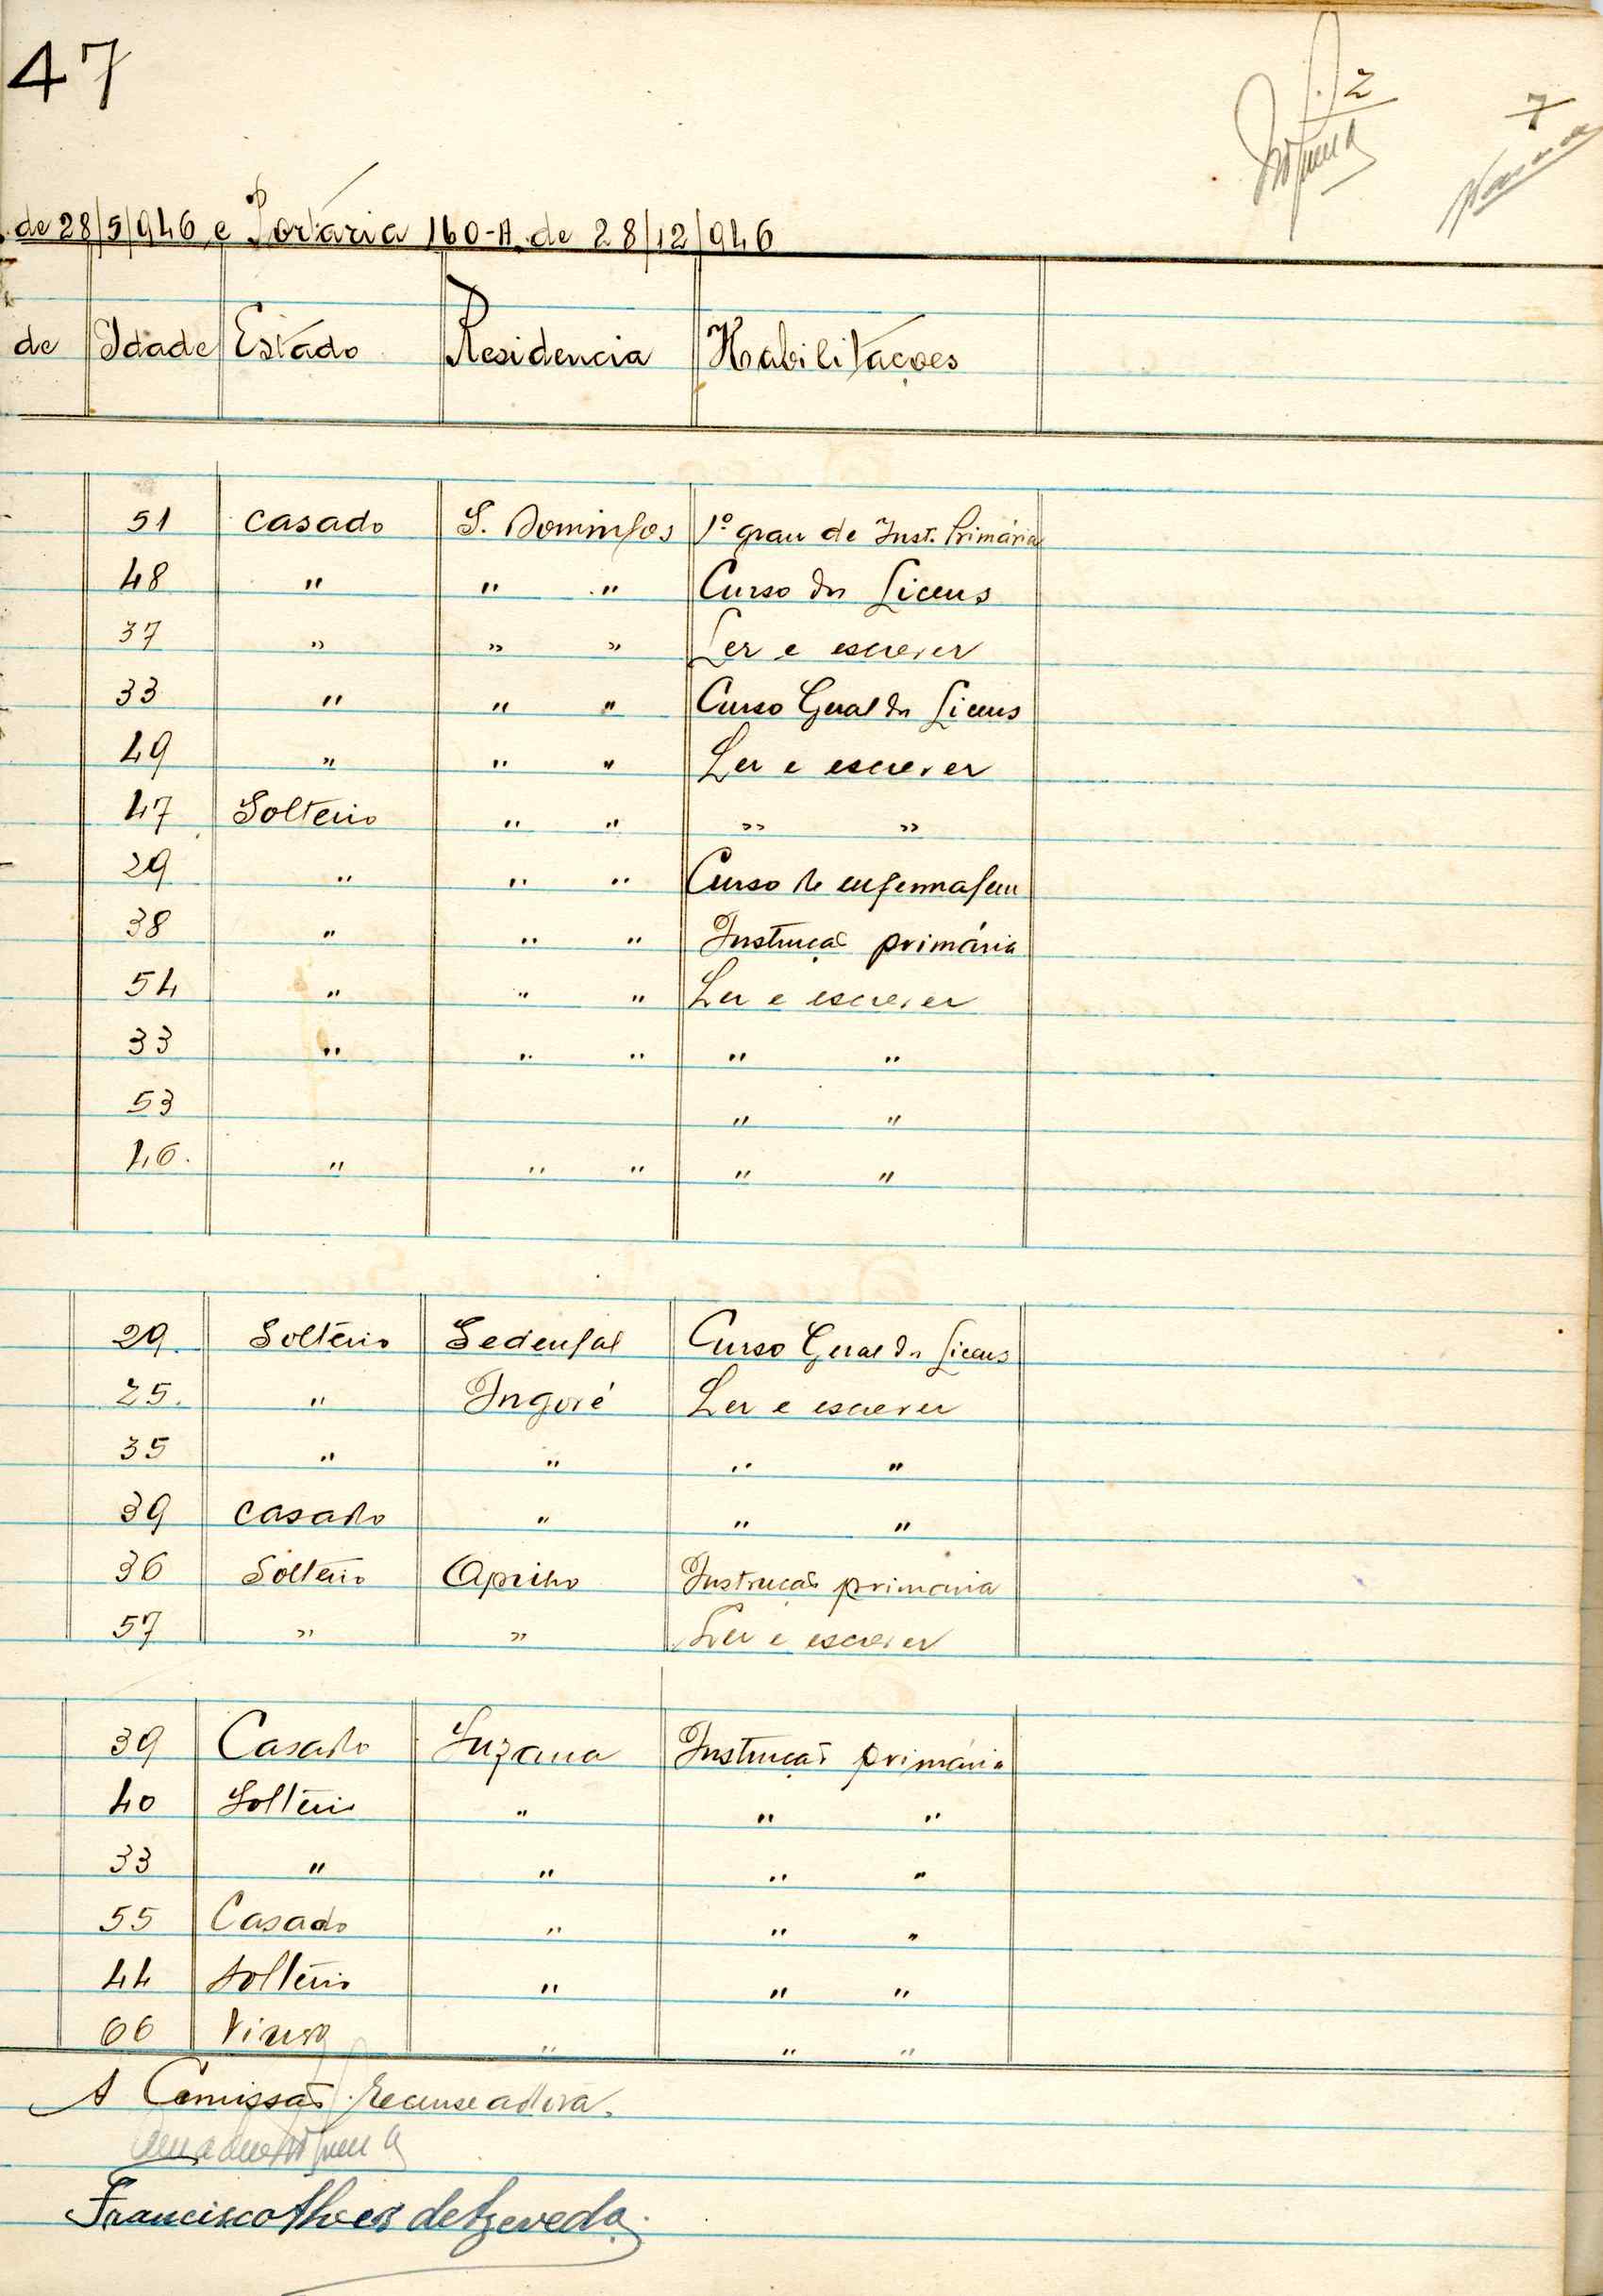 47
2
7
de 28/5/946 e Portaria 160-A de 28/12/946
de Idade Estado Residencia Habilitaçoes
51 casado S. Domingos 1º grau de Inst. Primária
48 " " " Curso dos Liceus
37 " " " Ler e escrever
33 " " " Curso Geral dos Liceus
49 " " " Ler e escrever
47 Solteiro " " " "
29 " " " Curso de enfermagem
38 " " " Instrução primária
54 " " " Ler e escrever
33 " " " " "
53 " "
46. " " " " "
29. Solteiro Sedengal Curso Geral dos Liceus
25. " Ingoré Ler e escrever
35 " " " "
39 casado " " "
36 Solteiro Apilho Instrução primaria
57 " " Ler e escrever
39 Casado Suzana Instrução primária
40 Solteiro " " "
33 " " " "
55 Casado " " "
44 Solteiro " " "
66 Viuvo " " "
A Comissão Recenseadora.
Francisco Alves de Azevedo.